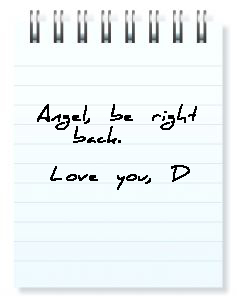 Angel, be right
back.
Love you, D